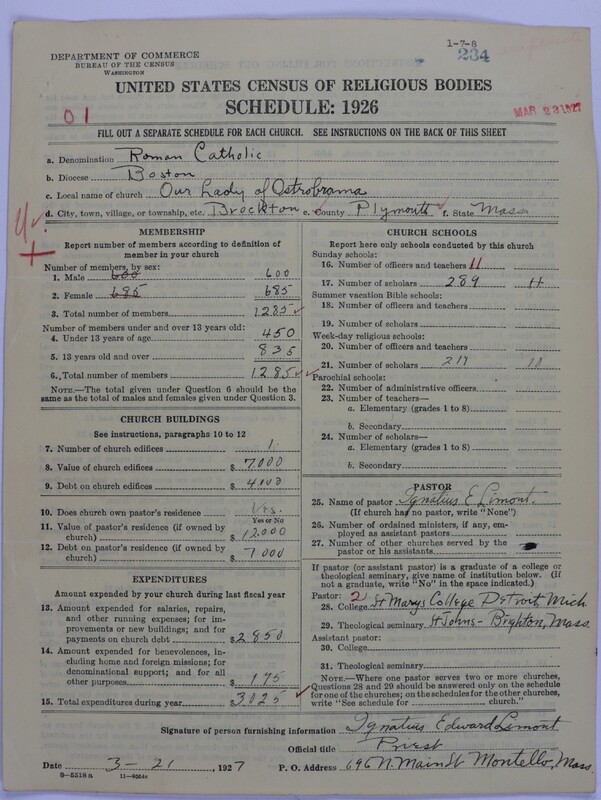 1-7-8
234
DEPARTMENT OF COMMERCE
BUREAU OF THE CENSUS
WASHINGTON
UNITED STATES CENSUS OF RELIGIOUS BODIES
SCHEDULE: 1926
01
MAR 23 1927
FILL OUT A SEPARATE SCHEDULE FOR EACH CHURCH. SEE INSTRUCTIONS ON THE BACK OF THIS SHEET
a. Denomination Roman Catholic
b. Diocese Boston
c. Local name of church Our Lady of Ostrobrama
d. City, town, village, or township, etc. Brockton e. County Plymouth f. State Mass
MEMBERSHIP
Report number of members according to definition of member in your church
Number of members, by sex:
1. Male 600 600
2. Female 685 685
3. Total number of members 1285
Number of members under and over 13 years old:
4. Under 13 years of age 450
5. 13 years old and over 835
6. Total number of members 1285
NOTE.—The total given under Question 6 should be
same as the total of males and females given under Question 3.
CHURCH BUILDINGS
See instructions, paragraphs 10 to 12
7. Number of church edifices 1.
8. Value of church edifices $ 7000
9. Debt on church edifices $ 4000
10. Does church own pastor's residence Yes.
Yes or No
11. Value of pastor's residence (if owned by
church) $ 12,000
12. Debt on pastor's residence (if owned by
church) $ 7000
EXPENDITURES
Amount expended by your church during last fiscal year
13. Amount expended for salaries, repairs,
and other running expenses; for im-
provements or new buildings; and for
payments on church debt $ 2850
14. Amount expended for benevolences, in-
cluding home and foreign missions; for
denominational support; and for all
other purposes $ 175
15. Total expenditures during year $ 3025
CHURCH SCHOOLS
Report here only schools conducted by this church
Sunday schools:
16. Number of officers and teachers 11
17. Number of scholars 289
Summer vacation Bible schools:
18. Number of officers and teachers
19. Number of scholars
Week-day religious schools:
20. Number of officers and teachers
21. Number of scholars
Parochial schools:
22. Number of administrative officers
23. Number of teachers—
a. Elementary (grades 1 to 8)
b. Secondary
24. Number of scholars—
a. Elementary (grades 1 to 8)
b. Secondary
PASTOR
25. Name of pastor Ignatius E Limont
(If church has no pastor, write "None")
26. Number of ordained ministers, if any, em-
ployed as assistant pastors
27. Number of other churches served by the
pastor or his assistants
If pastor (or assistant pastor) is a graduate of a college or
theological seminary, give name of institution below. (If
not a graduate, write "No" in the space indicated.)
Pastor: 2
28. College St Marys College Detroit Mich.
29. Theological seminary St Johns - Brighton, Mass.
Assistant pastor:
30. College
31. Theological seminary
NOTE.—Where one pastor serves two or more churches,
Questions 28 and 29 should be answered only on the schedule
for one of the churches; on the schedules for the other churches,
write "See schedule for church."
Signature of person furnishing information Ignatius Edward Limont
Official title Priest
Date 3-21, 1927 P. O. Address 696 N. Main St Montello, Mass.
8-5518 a